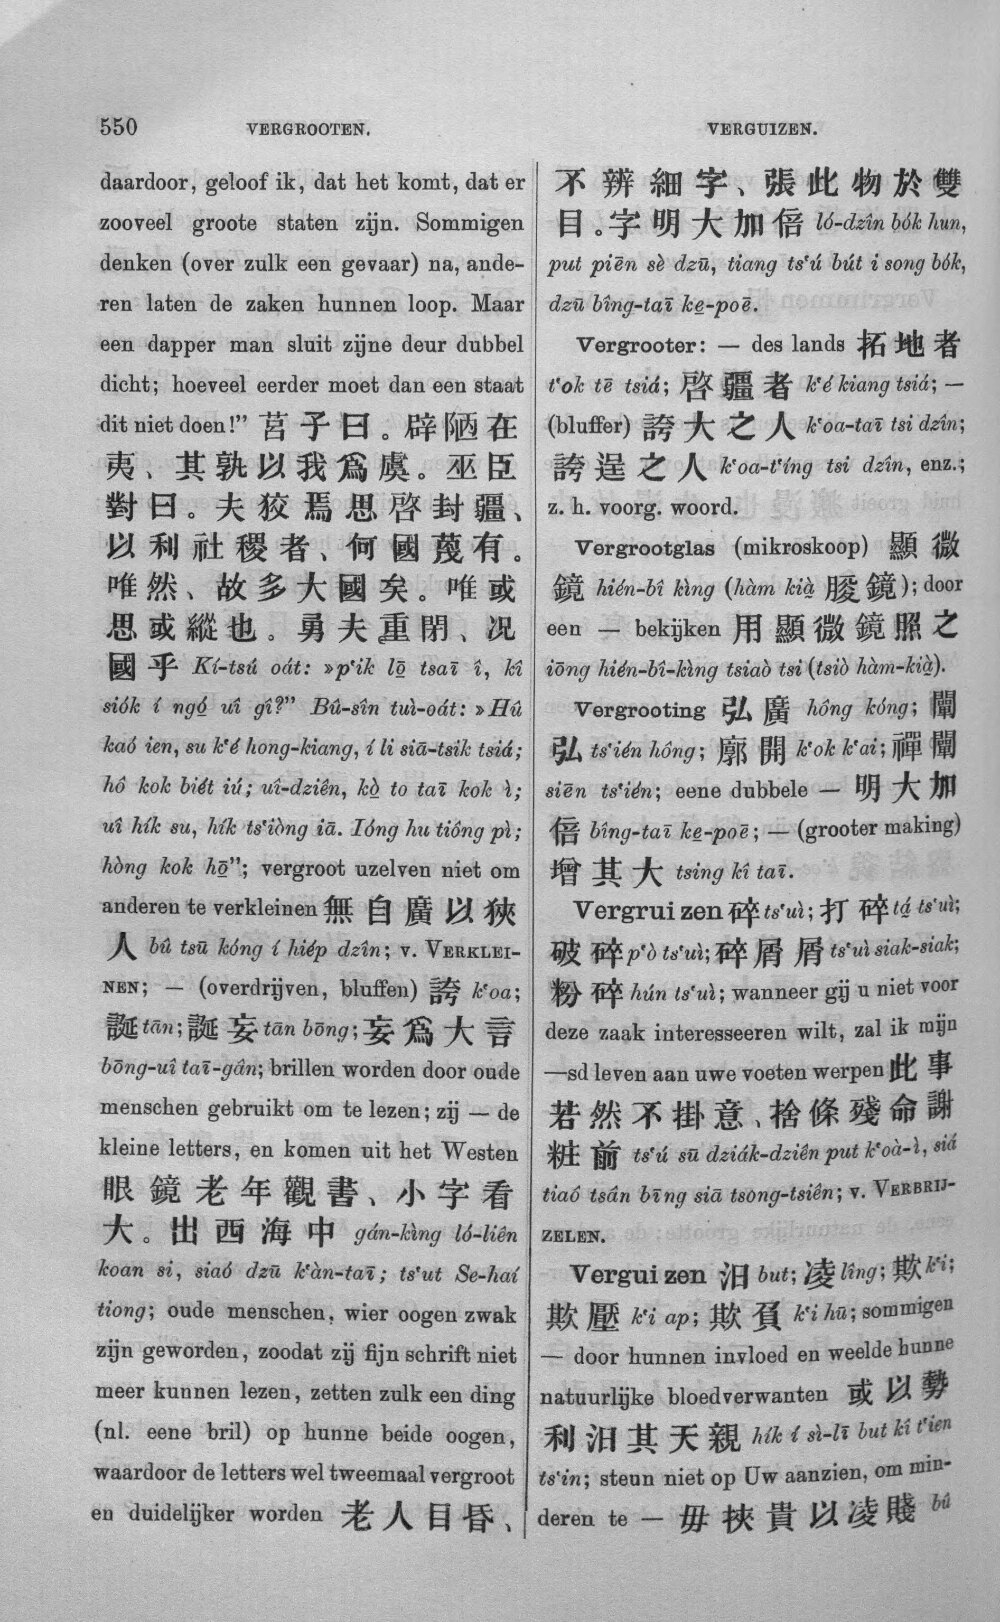 550
VERGROOTEN.
VERGUIZEN.
daardoor, geloof ik, dat het komt, dat er
zooveel groote staten zijn. Sommigen
denken (over zulk een gevaar) na, ande-
ren laten de zaken hunnen loop. Maar
een dapper man sluit zijne deur dubbel
dicht; hoeveel eerder moet dan een staat
dit niet doen!" 莒子曰。辟陋在
夷、其孰以我爲虞。巫臣
對曰。夫狡焉思啓封疆、
以利社稷者、何國蔑有。
唯然、故多大國矣。唯或
思或縱也。勇夫重閉、况
國乎 Kí-tsú oát: »pʻik lō̤ tsaī î, kî
siók í ngó̤ uî gî?" Bû-sîn tuì-oát: »Hû
kaó ien, su kʻé hong-kiang, í li siā-tsik tsiá;
hô kok biét iú; uî-dziên, kò̤ to taī kok ì;
uî hík su, hík tsʻiòng iā. Ióng hu tióng pì;
hòng kok hō̤"; vergroot uzelven niet om
anderen te verkleinen 無自廣以狹
人 bû tsū kóng í hiép dzîn; v. VERKLEI-
NEN; — (overdrijven, bluffen) 誇 kʻoa;
誕 tān; 誕妄 tān bōng; 妄爲大言
bōng-uî taī-gân; brillen worden door oude
menschen gebruikt om te lezen; zij — de
kleine letters, en komen uit het Westen
眼鏡老年觀書、小字看
大。出西海中 gán-kìng ló-liên
koan si, siaó dzū kʻàn-taī; tsʻut Se-haí
tiong; oude menschen, wier oogen zwak
zijn geworden, zoodat zij fijn schrift niet
meer kunnen lezen, zetten zulk een ding
(nl. eene bril) op hunne beide oogen,
waardoor de letters wel tweemaal vergroot
en duidelijker worden 老人目昏、
不辨細字、張此物於雙
目。字明大加倍 ló-dzîn bók hun,
put piēn sè dzū, tiang tsʻú bút i song bók,
dzū bîng-taī ke̤-poē.
Vergrooter: — des lands 拓地者
tʻok tē tsiá; 啓疆者 kʻé kiang tsiá; —
(bluffer) 誇大之人 kʻoa-taī tsi dzîn;
誇逞之人 kʻoa-tʻíng tsi dzîn, enz.;
z. h. voorg. woord.
Vergrootglas (mikroskoop) 顯微
鏡 hién-bî kìng (hàm kià̤ 朘鏡); door
een — bekijken 用顯微鏡照之
iōng hién-bî-kìng tsiaò tsi (tsiò hàm-kià̤).
Vergrooting 弘廣 hông kóng; 闡
弘 tsʻién hông; 廓開 kʻok kʻai; 禪闡
siēn tsʻién; eene dubbele — 明大加
倍 bîng-taī ke̤-poē; — (grooter making)
增其大 tsing kî taī.
Vergruizen 碎 tsʻuì; 打碎 tá̤ tsʻuì;
破碎 pʻò tsʻuì; 碎屑屑 tsʻuì siak-siak;
粉碎 hún tsʻuì; wanneer gij u niet voor
deze zaak interesseeren wilt, zal ik mijn
—sd leven aan uwe voeten werpen 此事
若然不掛意、捨條殘命謝
粧前 tsʻú sū dziák-dziên put kʻoà-ì, siá
tiaó tsân bīng siā tsong-tsiên; v. VERBRIJ-
ZELEN.
Verguizen 汨 but; 凌 lîng; 欺 kʻi;
欺壓 kʻi ap; 欺負 kʻi hū; sommigen
— door hunnen invloed en weelde hunne
natuurlijke bloedverwanten 或以勢
利汨其天親 hík í sì-lī but kî tʻien
tsʻin; steun niet op Uw aanzien, om min-
deren te — 毋挾貴以凌賤 bû